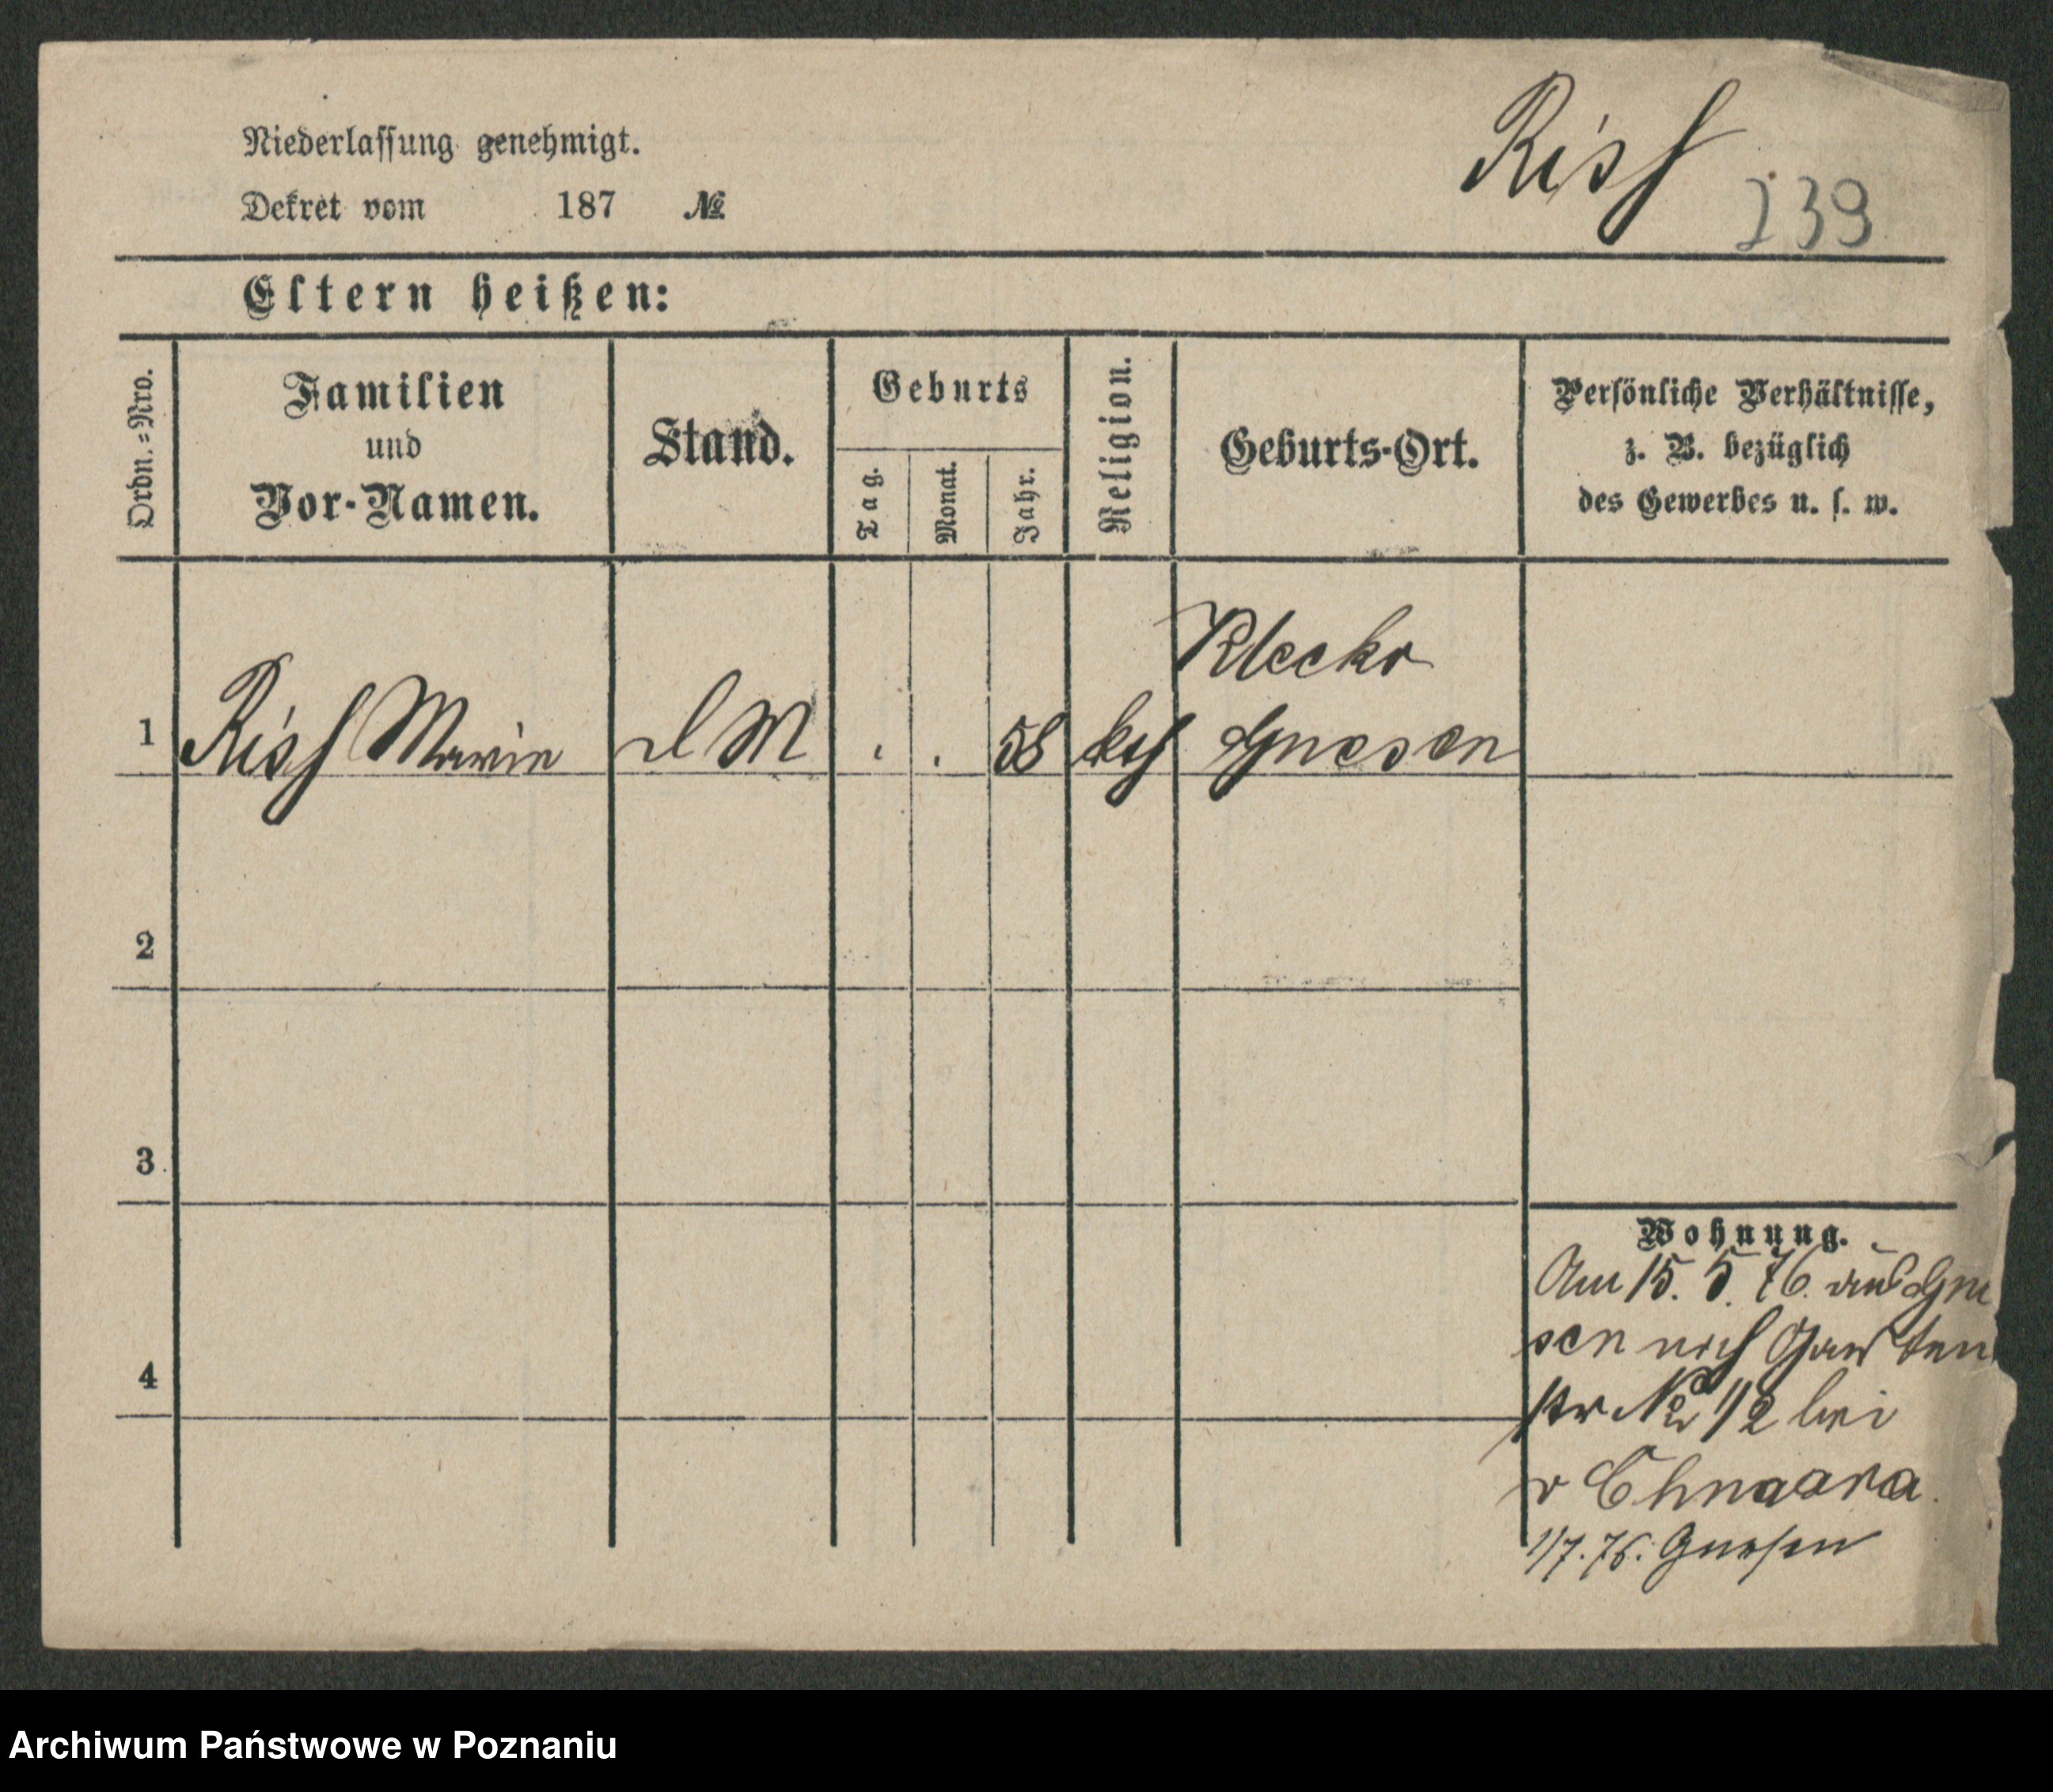 Niederlassung genehmigt.
Dekret vom 187 №
Risch
139
Eltern heißen:
Ordn.=Nro.
Familien
und
Vor-Namen.
Stand.
Geburts
Tag.
Monat.
Jahr.
Religion.
Geburts-Ort.
Persönliche Verhältnisse,
z. B. bezüglich
des Gewerbes u. s. w.
Klecko
1 Risch Marie d M . . 58 kth Gnesen
2
3
Wohnung.
Am 15. 5. 76. aus Gne
4
sen nach Garten
str № 1/2 bei
v
1/7. 76. Gnesen
Archiwum Państwowe w Poznaniu